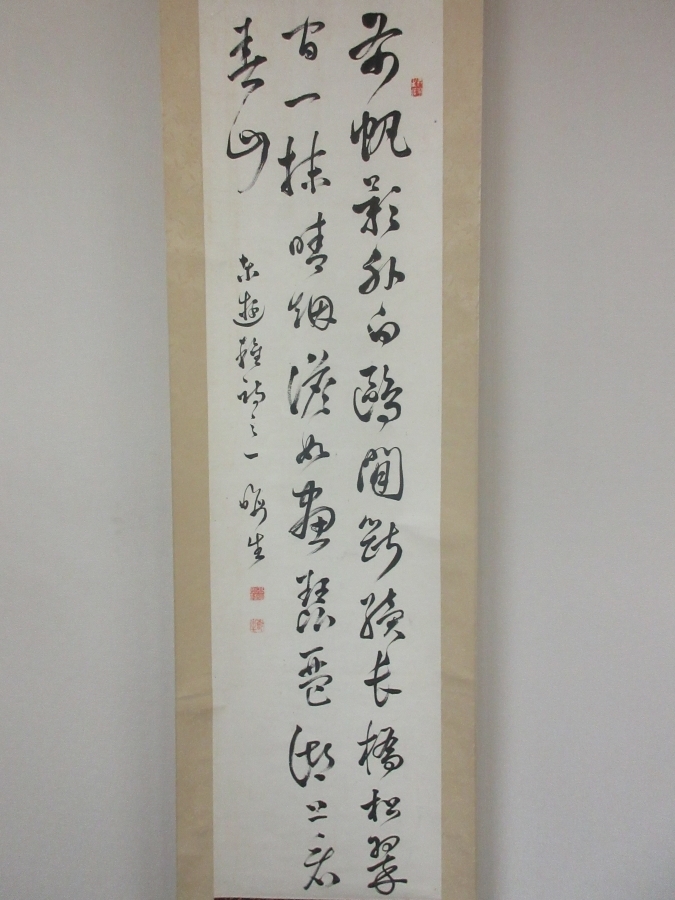 布帆影外白鷗閒斷續長橋松翠
間一抹晴烟澹如畫琵琶湖上看
春山
東遊雜詩之一 晦生